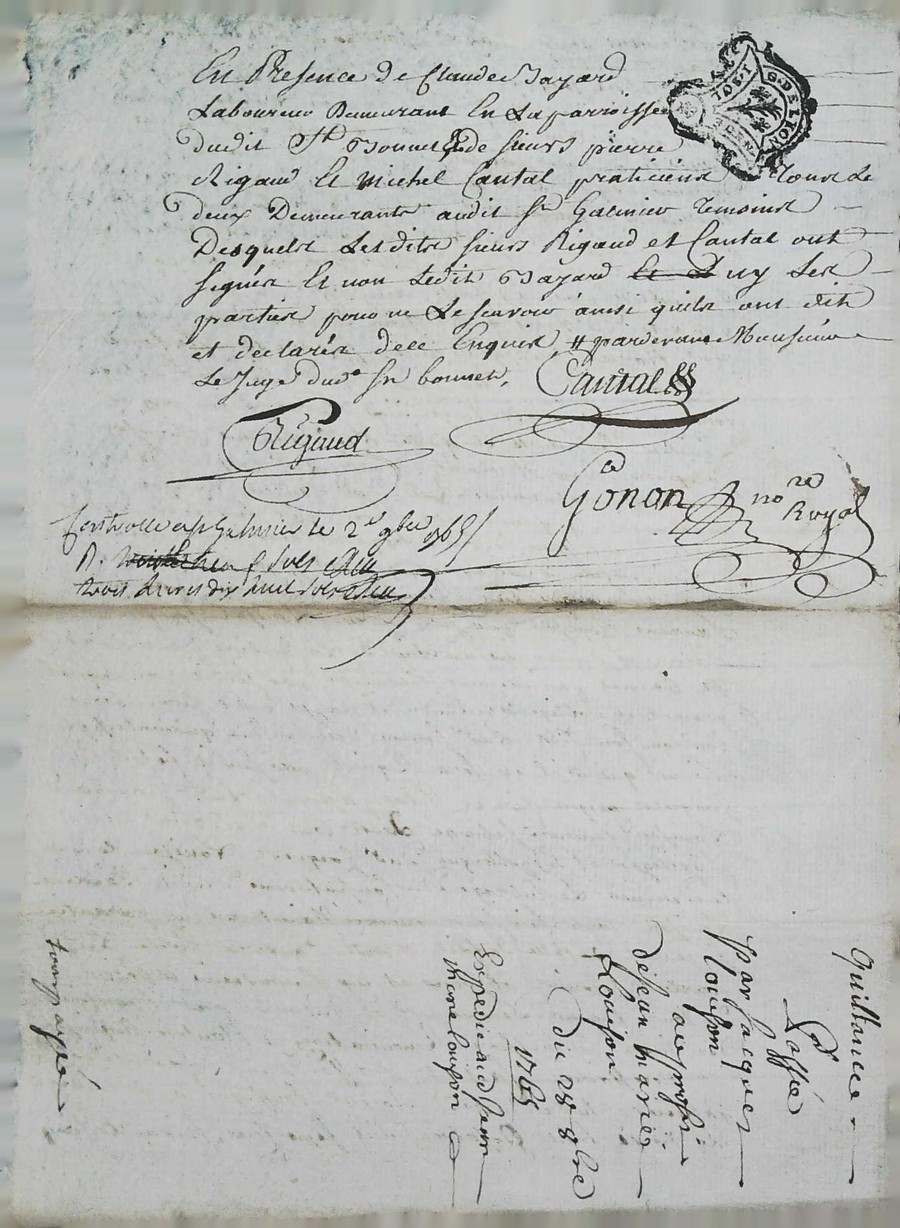 En Presence de Claude Bayard
Laboureur Demeurant En La parroisse
dudit St Bonnet & de sieurs pierre
Rigaud Et Michel Cantal praticiens Tous Le
deux Demeurants audit St Galmier Temoins
Desquels Lesdits sieurs Rigaud et Cantal ont
signés Et non Ledit Bayard ny Les
parties pour ne Le scavoir ainsi quils ont dit
et declarés dece Enquis # pardevant Monsieur
Le Juge dud. St bonnet,
Cantal
Rigaud
Gonon nore
Royal
Controlle a St Galmier le 2e 9bre 1765
R. sols
trois livres dix huit sols
G. DE LYON
Quittance
passée
par Jacques
Louison
au profit
de Jean marie
Louison
du 28 8bre
1765
Expedié aud Jean
marie louison
tout payé